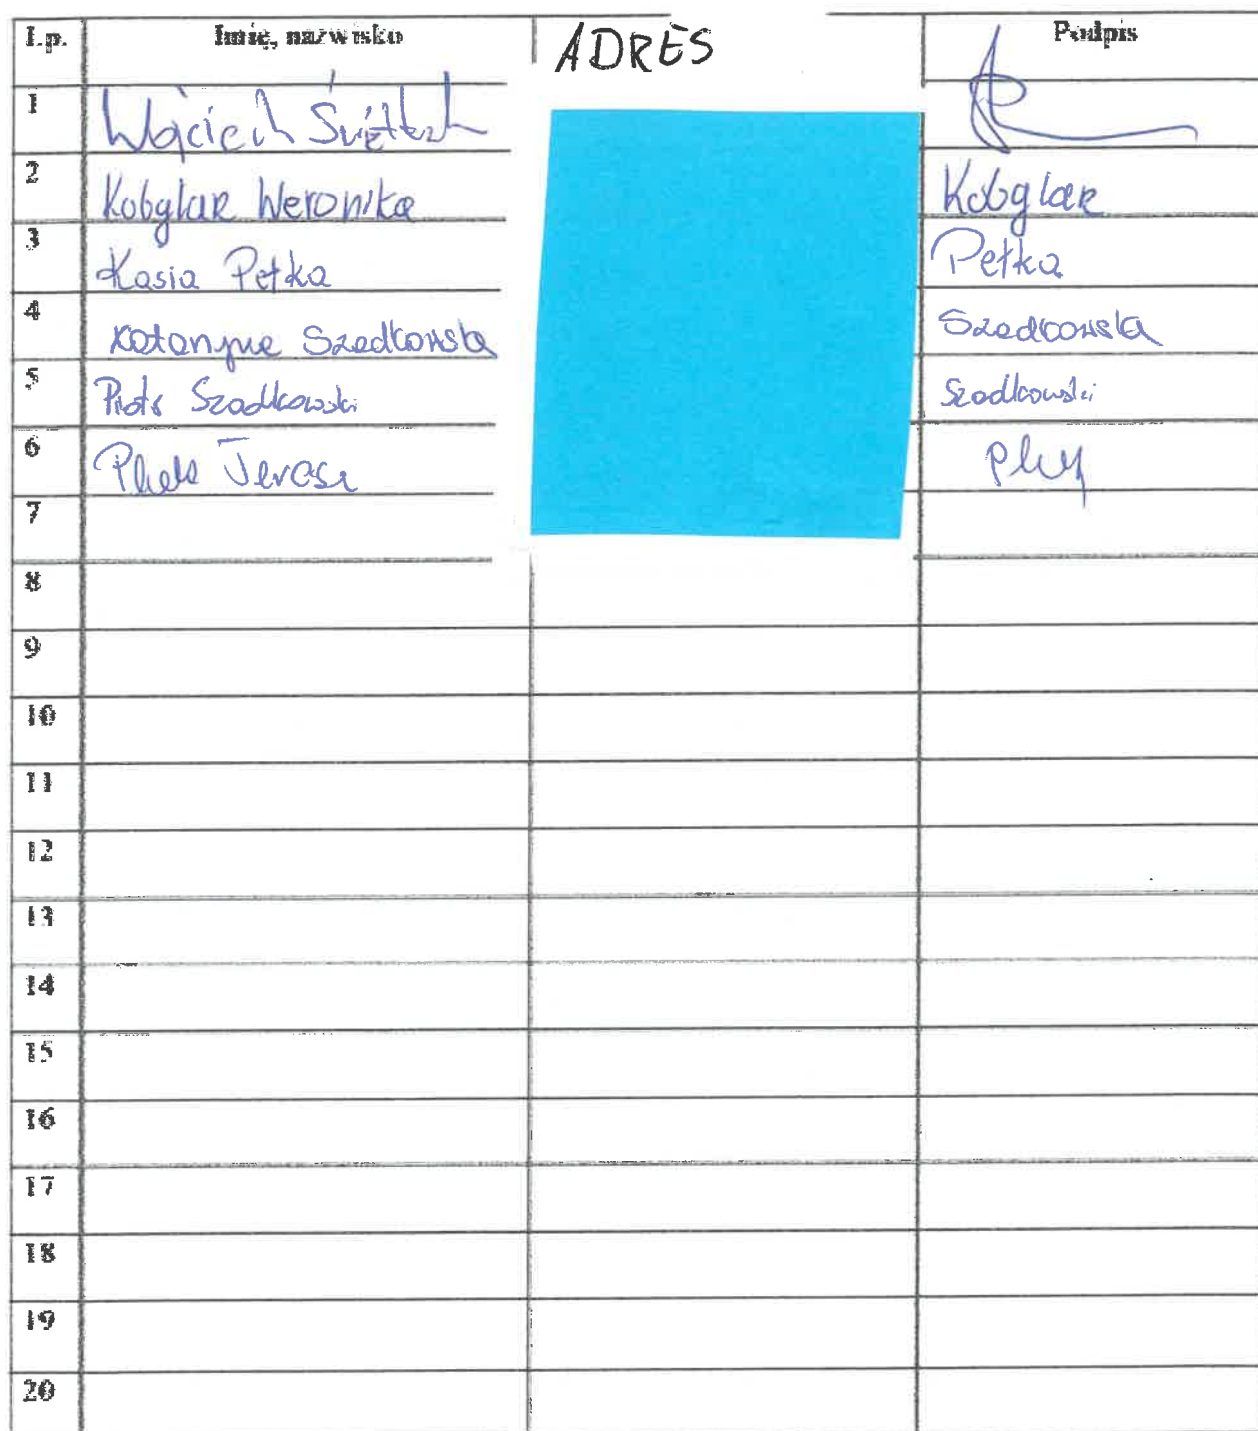 L.p. Imię, nazwisko ADRES Podpis
1 Wojciech
2 Kobylar Weronika Kobylar
3 Kasia Petka Petka
4 Katarzyna Szadkowska Szadkowska
5 Piotr Szadkowski Szadkowski
6
7
8
9
10
11
12
13
14
15
16
17
18
19
20